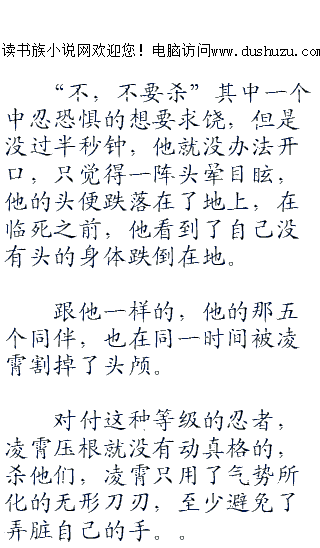 读书族小说网欢迎您！电脑访问www.dushuzu.com
“不，不要杀”其中一个
中忍恐惧的想要求饶，但是
没过半秒钟，他就没办法开
口，只觉得一阵头晕目眩，
他的头便跌落在了地上，在
临死之前，他看到了自己没
有头的身体跌倒在地。
跟他一样的，他的那五
个同伴，也在同一时间被凌
霄割掉了头颅。
对付这种等级的忍者，
凌霄压根就没有动真格的，
杀他们，凌霄只用了气势所
化的无形刀刃，至少避免了
弄脏自己的手。。